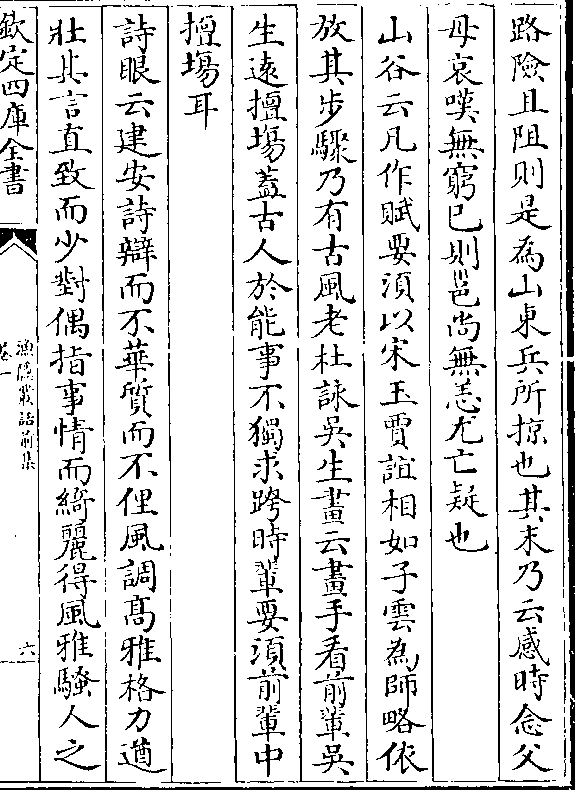 路險且阻則是為山東兵所掠也其末乃云感時念父
母哀嘆無窮已則邕尚無恙尤亡疑也
山谷云凡作賦要須以宋玉賈誼相如子雲為師略依
放其步驟乃有古風老杜詠吳生畫云畫手看前輩吳
生遠擅塲蓋古人於能事不獨求跨時輩要須前輩中
擅塲耳
詩眼云建安詩辯而不華質而不俚風調髙雅格力遒
壯其言直致而少對偶指事情而綺麗得風雅騷人之
欽定四庫全書
漁隱叢話前集
卷一
六